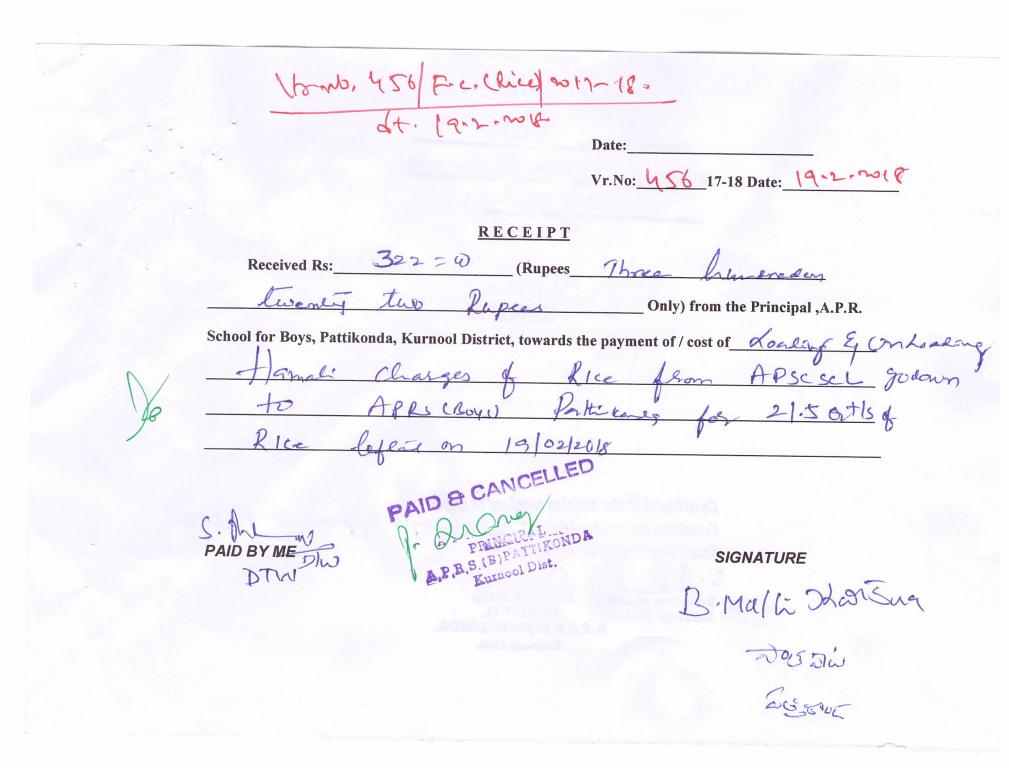 Vr.no. 456/F.C.(Rice)/2017-18.
dt. 19.2.2018
Date:
Vr.No: 456 17-18 Date: 19.2.2018
RECEIPT
Received Rs: 322=00 (Rupees Three
twenty two Rupees Only) from the Principal ,A.P.R.
School for Boys, Pattikonda, Kurnool District, towards the payment of / cost of Loading & Unloading
Hamali Charges of Rice from APSCSCL godown
to APRS(Boys) Pattikonda for 21.5 Qtls of
Rice on 19/02/2018
PAID & CANCELLED
PRINCIPAL
A.P.R.S.(B)PATTIKONDA
Kurnool Dist.
S.
PAID BY ME
DTW
SIGNATURE
B. Malli